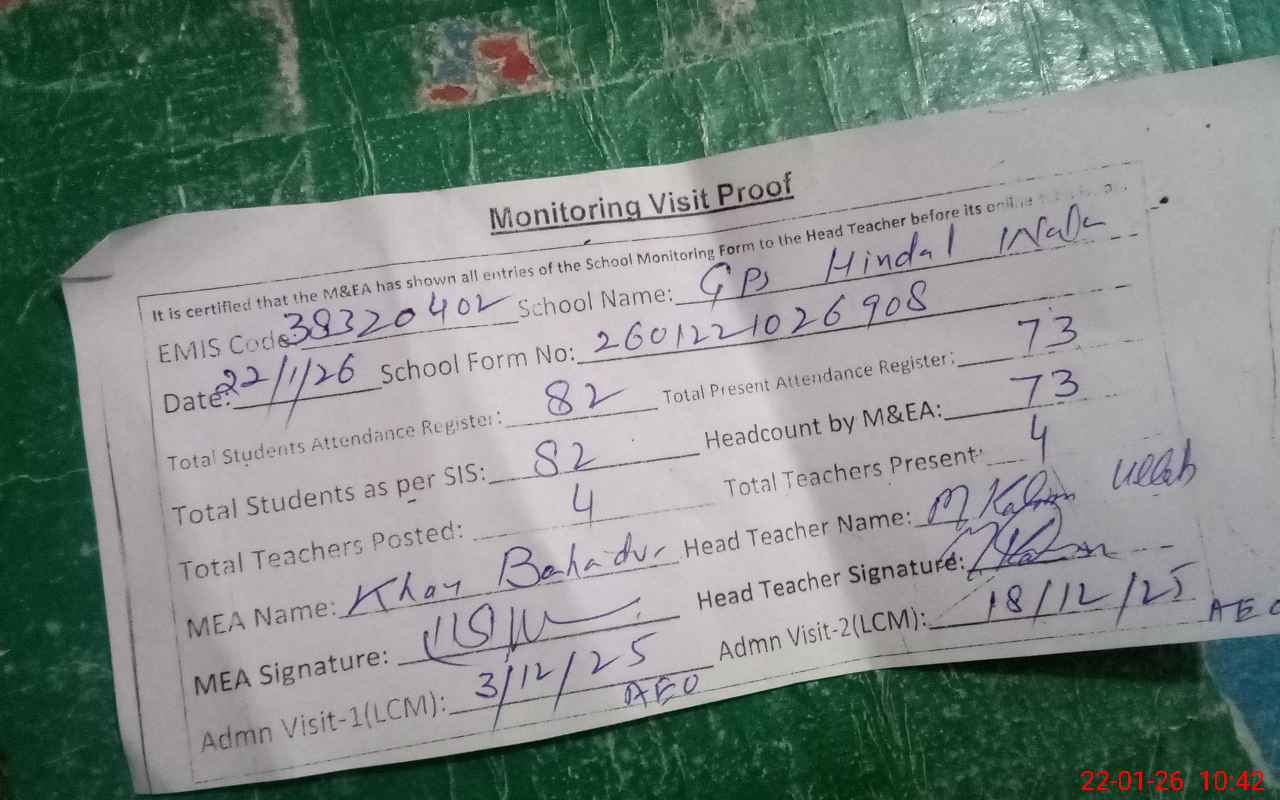 Monitoring Visit Proof
It is certified that the M&EA has shown all entries of the School Monitoring Form to the Head Teacher before its online
EMIS Code: 38320402 School Name: GPS Hindal Wala
Date: 22/1/26 School Form No: 2601221026908
Total Students Attendance Register: 82 Total Present Attendance Register: 73
Total Students as per SIS: 82 Headcount by M&EA: 73
Total Teachers Posted: 4 Total Teachers Present: 4
MEA Name: Khan Bahadur Head Teacher Name: M Kalim Ullah
MEA Signature: Head Teacher Signature:
Admn Visit-1(LCM): 3/12/25 Admn Visit-2(LCM): 18/12/25
AEO AEO
22-01-26 10:42